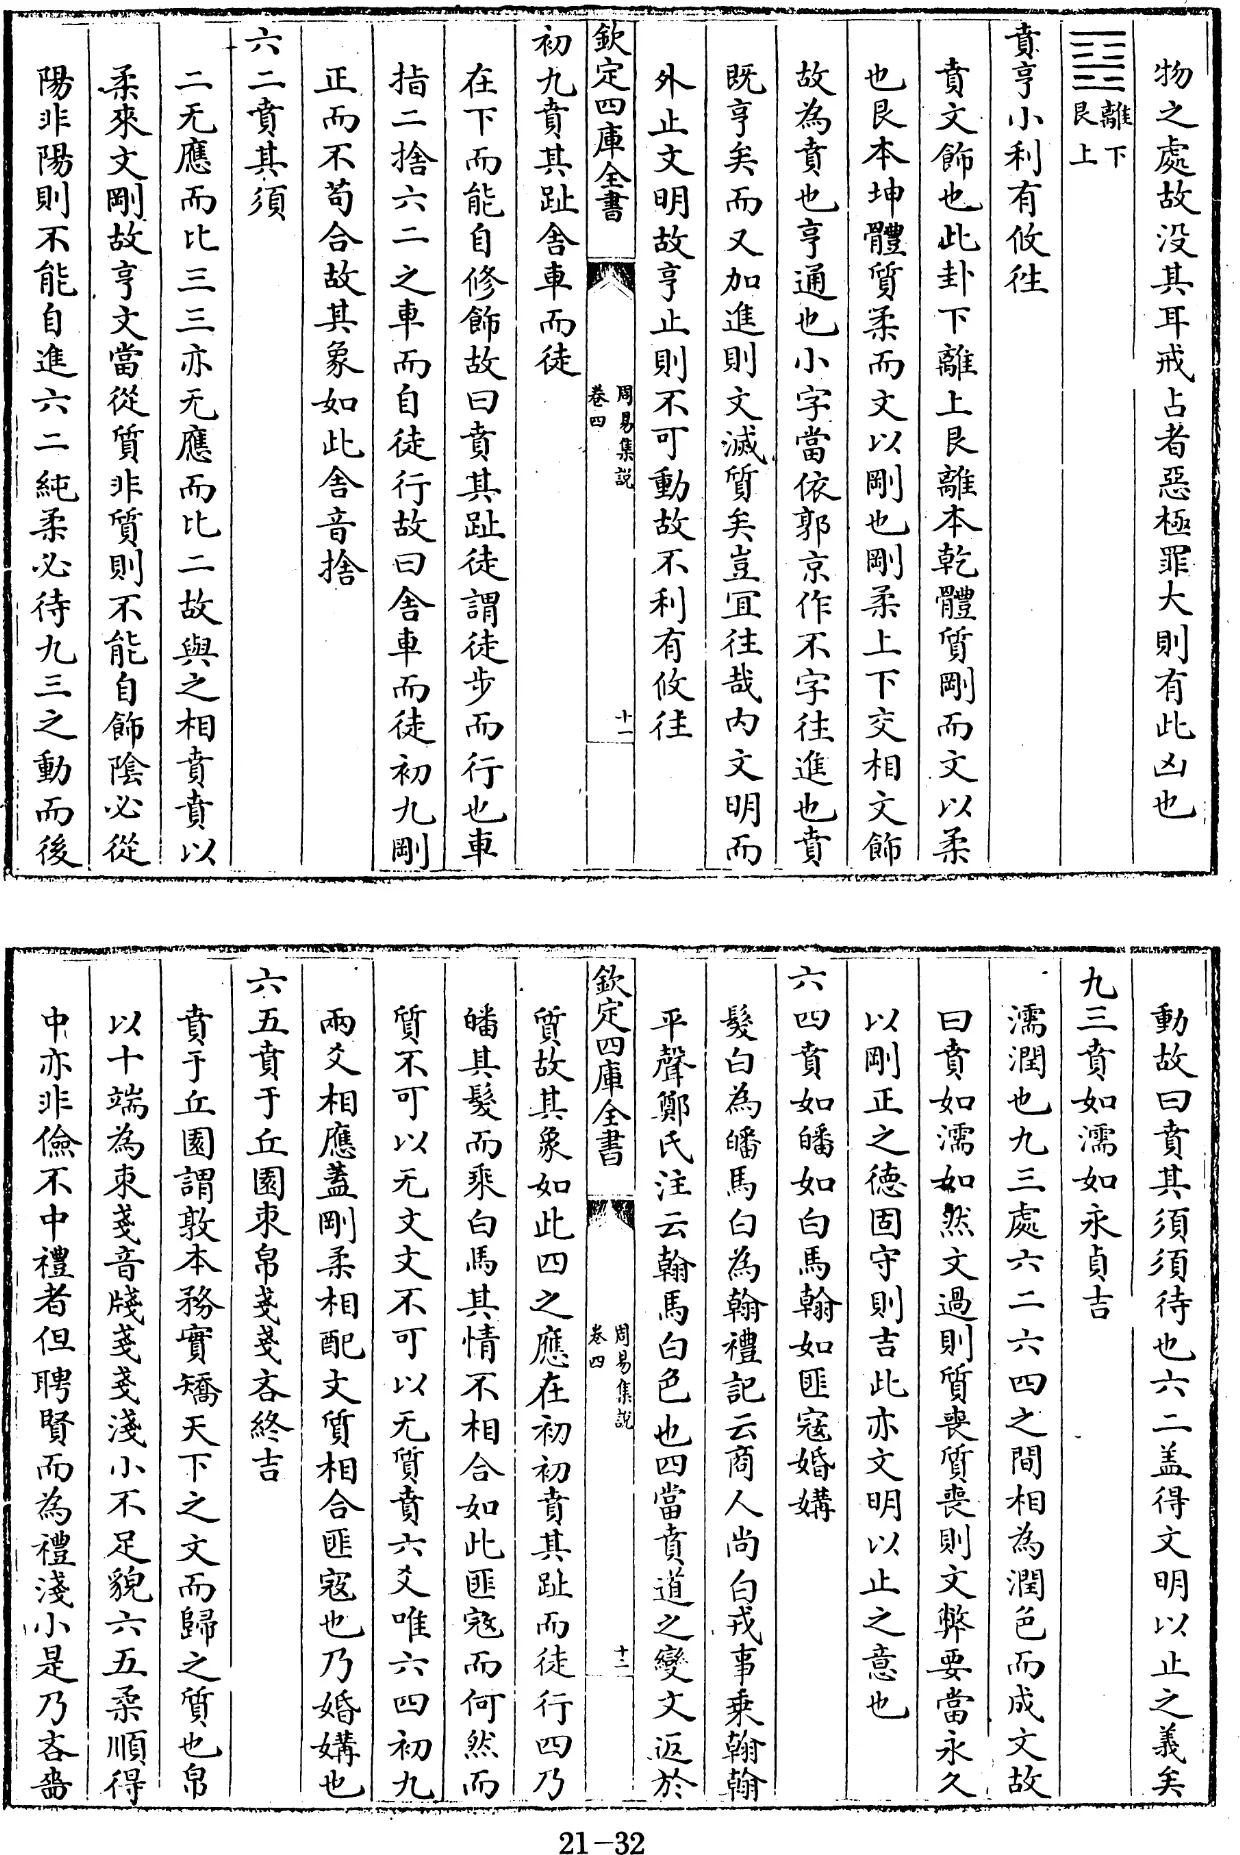 物之處故没其耳戒占者惡極罪大則有此凶也
離下
艮上
賁亨小利有攸往
賁文飾也此卦下離上艮離本乾體質剛而文以柔
也艮本坤體質柔而文以剛也剛柔上下交相文飾
故為賁也亨通也小字當依郭京作不字往進也賁
既亨矣而又加進則文滅質矣豈宜往哉内文明而
外止文明故亨止則不可動故不利有攸往
欽定四庫全書
周易集説
卷四
十一
初九賁其趾舍車而徒
在下而能自修飾故曰賁其趾徒謂徒步而行也車
指二捨六二之車而自徒行故曰舍車而徒初九剛
正而不苟合故其象如此舍音捨
六二賁其須
二无應而比三三亦无應而比二故與之相賁賁以
柔來文剛故亨文當從質非質則不能自飾陰必從
陽非陽則不能自進六二純柔必待九三之動而後
動故曰賁其須須待也六二盖得文明以止之義矣
九三賁如濡如永貞吉
濡潤也九三處六二六四之間相為潤色而成文故
曰賁如濡如然文過則質喪質喪則文弊要當永久
以剛正之德固守則吉此亦文明以止之意也
六四賁如皤如白馬翰如匪寇婚媾
髮白為皤馬白為翰禮記云商人尚白戎事乗翰翰
平聲鄭氏注云翰馬白色也四當賁道之變文返於
欽定四庫全書
周易集説
卷四
十二
質故其象如此四之應在初初賁其趾而徒行四乃
皤其髮而乘白馬其情不相合如此匪寇而何然而
質不可以无文文不可以无質賁六爻唯六四初九
兩爻相應蓋剛柔相配文質相合匪寇也乃婚媾也
六五賁于丘園束帛戔戔吝終吉
賁于丘園謂敦本務實矯天下之文而歸之質也帛
以十端為束戔音牋戔戔淺小不足貌六五柔順得
中亦非儉不中禮者但聘賢而為禮淺小是乃吝嗇
21-32